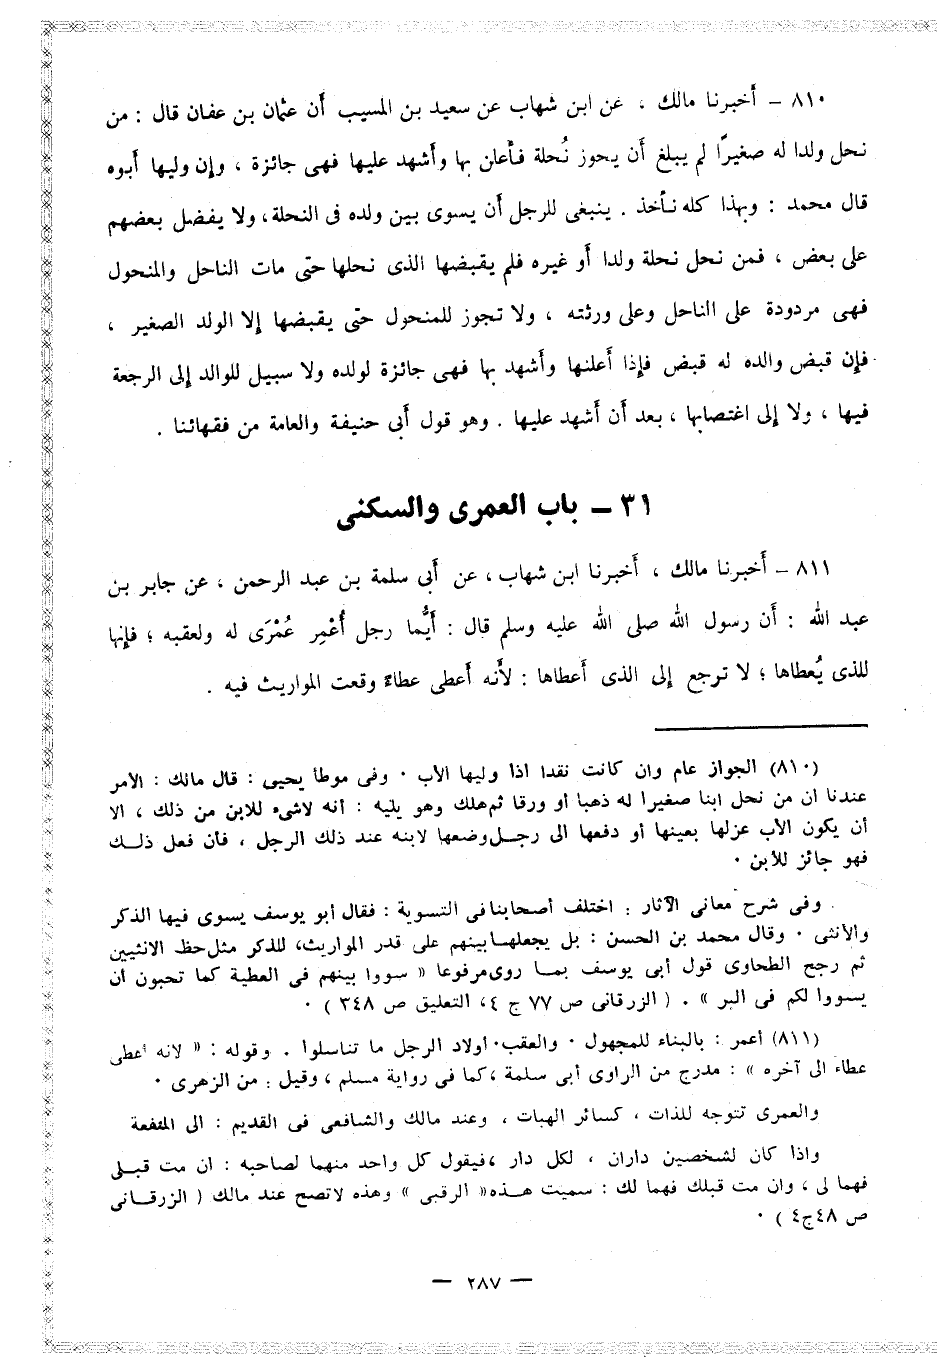 ٨١٠ – أخبرنا مالك ، عن ابن شهاب عن سعيد بن المسيب أن عثمان بن عفان قال : من
نحل ولدا له صغيرًا لم يبلغ أن يحوز نُحلة فأعلن بها وأشهد عليها فهى جائزة ، وإن وليها أبوه
قال محمد : وبهذا كله نأخذ . ينبغى للرجل أن يسوى بين ولده فى النحلة ، ولا يفضل بعضهم
على بعض ، فمن نحل نحلة ولدا أو غيره فلم يقبضها الذى نحلها حتى مات الناحل والمنحول
فهى مردودة على الناحل وعلى ورثته ، ولا تجوز للمنحول حتى يقبضها إلا الولد الصغير ،
فإن قبض والده له قبض فإذا أعلنها وأشهد بها فهى جائزة لولده ولا سبيل للوالد إلى الرجعة
فيها ، ولا إلى اغتصابها ، بعد أن أشهد عليها . وهو قول أبى حنيفة والعامة من فقهائنا .
٣١ – باب العمرى والسكنى
٨١١ – أخبرنا مالك ، أخبرنا ابن شهاب ، عن أبى سلمة بن عبد الرحمن ، عن جابر بن
عبد الله : أن رسول الله صلى الله عليه وسلم قال : أيُّما رجل أُعْمِر عُمْرَى له ولعقبه ؛ فإنها
للذى يُعطاها ؛ لا ترجع إلى الذى أعطاها : لأنه أعطى عطاءً وقعت المواريث فيه .
(٨١٠) الجواز عام وان كانت نقدا اذا وليها الأب . وفى موطأ يحيى : قال مالك : الأمر
عندنا أن من نحل ابنا صغيرا له ذهبا أو ورقا ثم هلك وهو يليه : أنه لاشىء للابن من ذلك ، الا
أن يكون الأب عزلها بعينها أو دفعها الى رجل وضعها لابنه عند ذلك الرجل ، فان فعل ذلك
فهو جائز للابن .
وفى شرح معانى الآثار : اختلف أصحابنا فى التسوية : فقال أبو يوسف يسوى فيها الذكر
والأنثى . وقال محمد بن الحسن : بل يجعلها بينهم على قدر المواريث، للذكر مثل حظ الانثيين
ثم رجح الطحاوى قول أبى يوسف بما روى مرفوعا « سووا بينهم فى العطية كما تحبون أن
يسووا لكم فى البر » . ( الزرقانى ص ٧٧ ج ٤ ، التعليق ص ٣٤٨ ) .
(٨١١) أعمر : بالبناء للمجهول . والعقب . أولاد الرجل ما تناسلوا . وقوله : « لانه أعطى
عطاء الى آخره » : مدرج من الراوى أبى سلمة ، كما فى رواية مسلم ، وقيل : من الزهرى .
والعمرى تتوجه للذات ، كسائر الهبات ، وعند مالك والشافعى فى القديم : الى المنفعة
واذا كان لشخصين داران ، لكل دار ، فيقول كل واحد منهما لصاحبه : ان مت قبلى
فهما لى ، وان مت قبلك فهما لك : سميت هذه « الرقبى » وهذه لاتصح عند مالك ( الزرقانى
ص ٤٨ ج ٤ ) .
— ٢٨٧ —